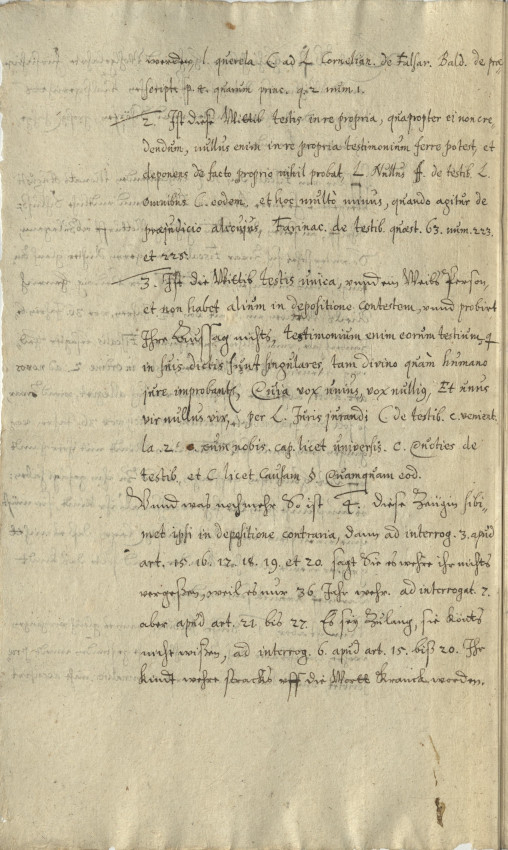 werden l. querela C ad L Cornelian. de Falsar. Bald. de præ
script. p. t. quarum princ. q. 2 num. 1.
2. Ist diese Wittib testis in re propria, quapropter ei non cre
dendum, nullus enim in re propria testimonium ferre potest, et
deponens de facto proprio nihil probat L. Nullus ff. de testib. L.
Omnibus C. eodem, et hoc multò minus, quando agitur de
præjudicio alicujus, Farinac. de testib. quæst. 63. num. 223.
et 225.
3. Ist die Wittib testis unica, unnd ein Weibs Person,
et non habet alium in depositione contestem, unnd probirt
Ihre Aussag nichts, testimonium enim eorum testium, q
in suis dictis sunt singulares, tam divino quàm humano
jure improbantr, Quia vox unius, vox nullius, Et unus
vir nullus vir, per L. Juris jurandi C de testib. c. veniens
cum nobis. cap. licet universis. c. Quoties de
testib. et C. licet Causam § Quamquam eod.
Unnd was noch mehr So ist 4. diese Zeügin sibi
met ipsi in depositione contraria, dann ad interrog. 3. apud
art. 15. 16. 17. 18. 19. et 20. sagt Sie es wehre ihr nichts
vergeßen, weil es nur 36 Jahr wehr. ad interrogat. 7.
aber apud art. 21 bis 27. Es sey Zulang, sie könts
nicht wißen, ad interrog. 6. apud art. 15. biß 20. Ihr
Kindt wehre stracks uff die Wortt Kranck worden.